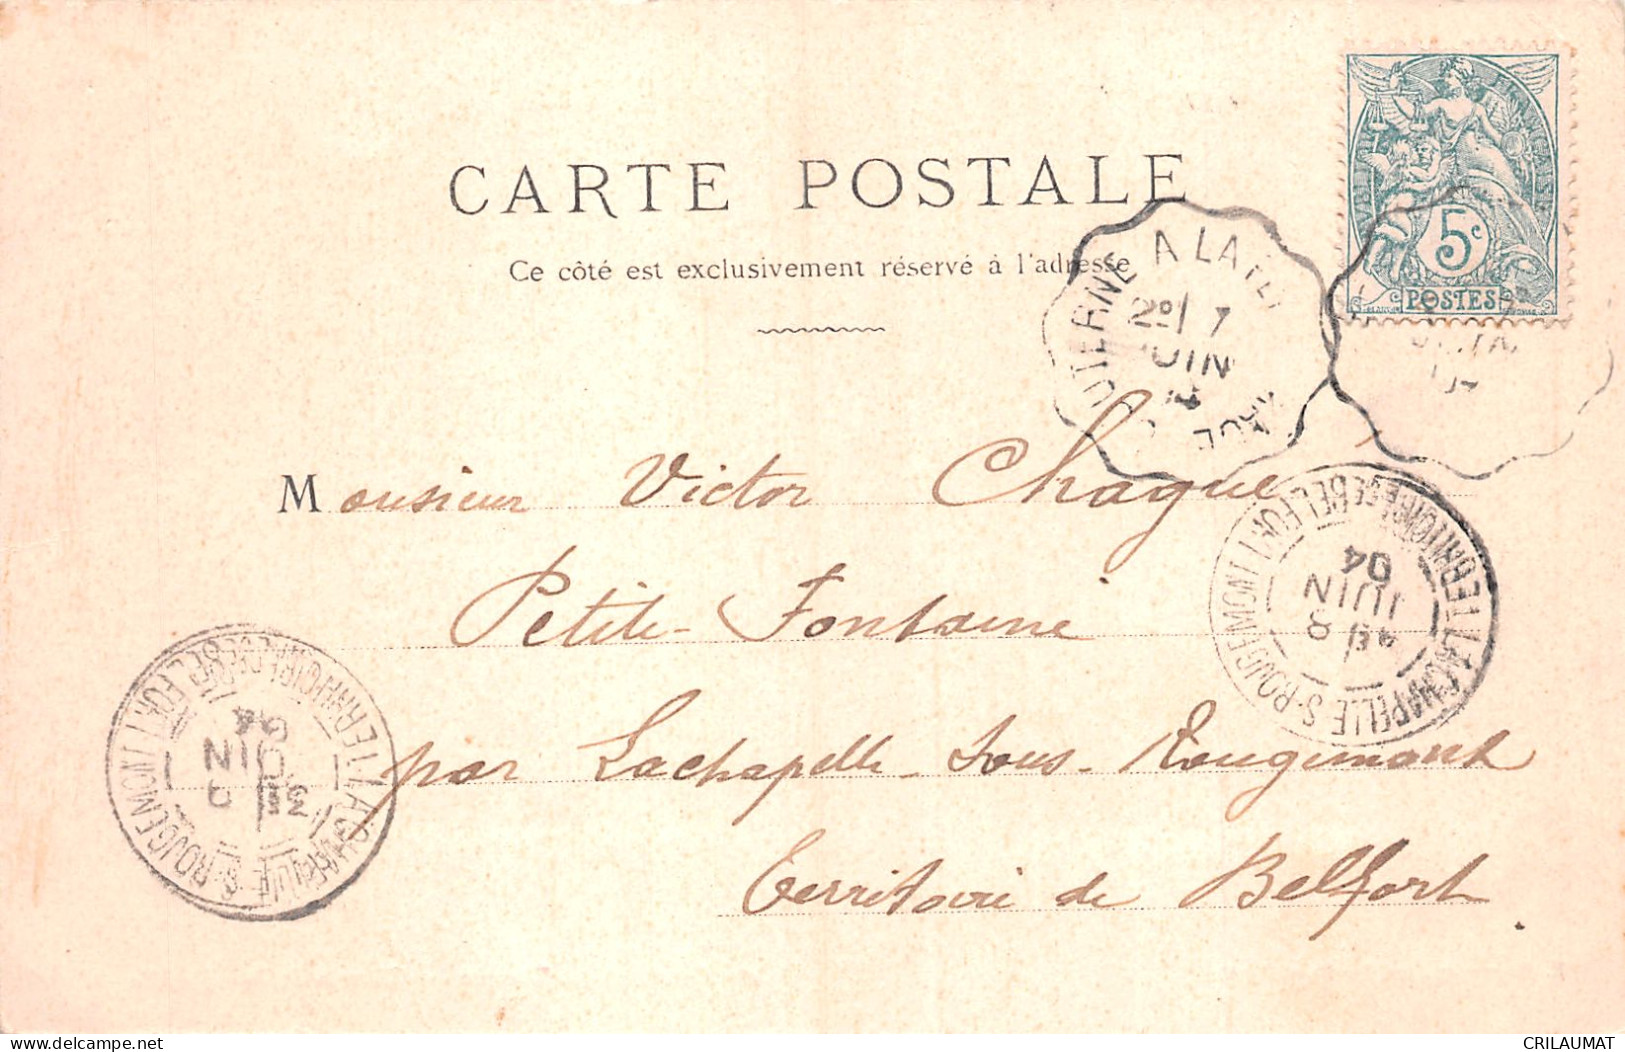 CARTE POSTALE
Ce côté est exclusivement réservé à l'adresse
5c
POSTES
A LA
JUIN
Monsieur Victor Chagué
Petite-Fontaine
par Lachapelle-Sous-Rougemont
Territoire de Belfort.
LACHAPELLE-S-ROUGEMONT
TERRIT(OIRE) DE BELFORT
8
JUIN
04
LACHAPELLE-S-ROUGEMONT
TERRIT(OIRE) DE BELFORT
JUIN
04
delcampe.net
CRILAUMAT